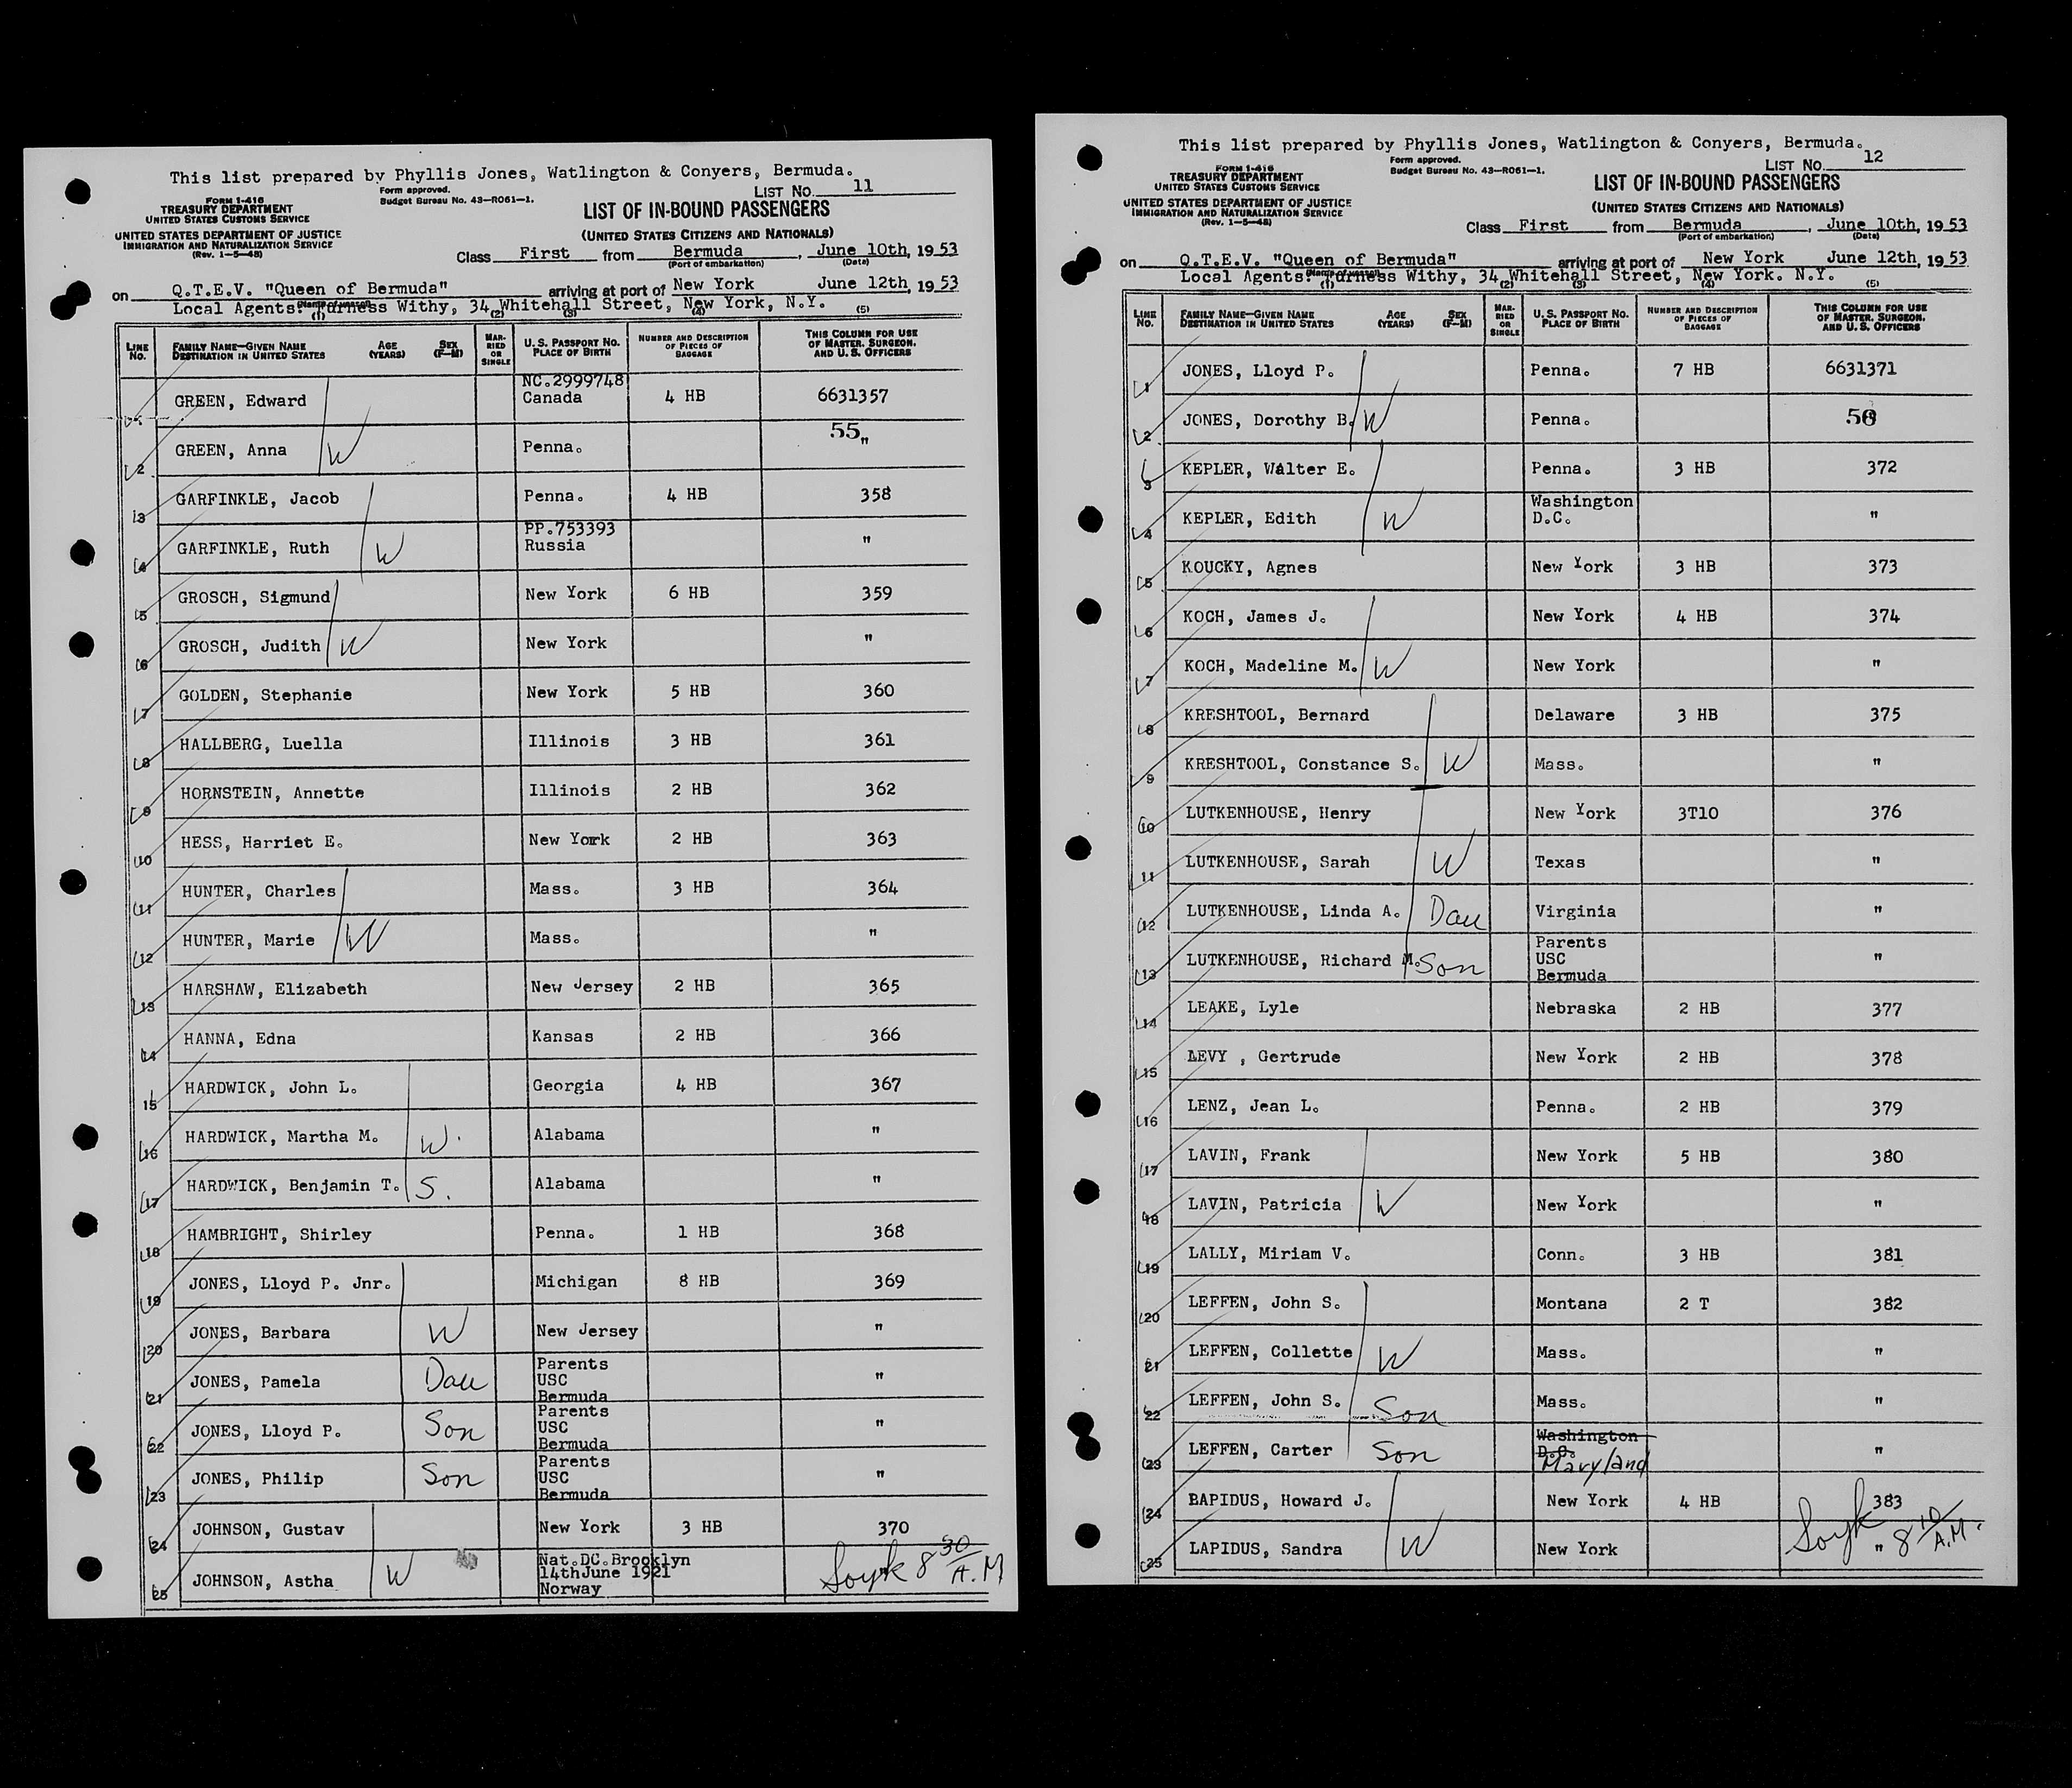 This list prepared by Phyllis Jones, Watlington & Conyers, Bermuda.
FORM I-416
TREASURY DEPARTMENT
UNITED STATES CUSTOMS SERVICE
UNITED STATES DEPARTMENT OF JUSTICE
IMMIGRATION AND NATURALIZATION SERVICE
(Rev. 1-5-48)
Form approved.
Budget Bureau No. 43-R061-1.
LIST NO. 11
LIST OF IN-BOUND PASSENGERS
(UNITED STATES CITIZENS AND NATIONALS)
Class First from Bermuda, June 10th, 1953
(Port of embarkation) (Date)
on Q.T.E.V. "Queen of Bermuda" arriving at port of New York June 12th, 1953
Local Agents: Furness Withy, 34 Whitehall Street, New York, N.Y.
(1) (2) (3) (4) (5)
LINE No. FAMILY NAME—GIVEN NAME DESTINATION IN UNITED STATES AGE (YEARS) SEX (F-M) MARRIED OR SINGLE U. S. PASSPORT No. PLACE OF BIRTH NUMBER AND DESCRIPTION OF PIECES OF BAGGAGE THIS COLUMN FOR USE OF MASTER, SURGEON, AND U. S. OFFICERS
GREEN, Edward NC.2999748 Canada 4 HB 6631357
2 GREEN, Anna W Penna. 55 "
3 GARFINKLE, Jacob Penna. 4 HB 358
4 GARFINKLE, Ruth W PP.753393 Russia "
5 GROSCH, Sigmund New York 6 HB 359
6 GROSCH, Judith W New York "
7 GOLDEN, Stephanie New York 5 HB 360
8 HALLBERG, Luella Illinois 3 HB 361
9 HORNSTEIN, Annette Illinois 2 HB 362
10 HESS, Harriet E. New York 2 HB 363
11 HUNTER, Charles Mass. 3 HB 364
12 HUNTER, Marie W Mass. "
13 HARSHAW, Elizabeth New Jersey 2 HB 365
14 HANNA, Edna Kansas 2 HB 366
15 HARDWICK, John L. Georgia 4 HB 367
16 HARDWICK, Martha M. W. Alabama "
17 HARDWICK, Benjamin T. S. Alabama "
18 HAMBRIGHT, Shirley Penna. 1 HB 368
19 JONES, Lloyd P. Jnr. Michigan 8 HB 369
20 JONES, Barbara W New Jersey "
21 JONES, Pamela Dau Parents USC Bermuda "
22 JONES, Lloyd P. Son Parents USC Bermuda "
23 JONES, Philip Son Parents USC Bermuda "
24 JOHNSON, Gustav New York 3 HB 370
25 JOHNSON, Astha W Nat.DC.Brooklyn 14thJune 1921 Norway 8 30 A.M
This list prepared by Phyllis Jones, Watlington & Conyers, Bermuda.
FORM I-416
TREASURY DEPARTMENT
UNITED STATES CUSTOMS SERVICE
UNITED STATES DEPARTMENT OF JUSTICE
IMMIGRATION AND NATURALIZATION SERVICE
(Rev. 1-5-48)
Form approved.
Budget Bureau No. 43-R061-1.
LIST NO. 12
LIST OF IN-BOUND PASSENGERS
(UNITED STATES CITIZENS AND NATIONALS)
Class First from Bermuda, June 10th, 1953
(Port of embarkation) (Date)
on Q.T.E.V. "Queen of Bermuda" arriving at port of New York June 12th, 1953
Local Agents: Furness Withy, 34 Whitehall Street, New York. N.Y.
(1) (2) (3) (4) (5)
LINE No. FAMILY NAME—GIVEN NAME DESTINATION IN UNITED STATES AGE (YEARS) SEX (F-M) MARRIED OR SINGLE U. S. PASSPORT No. PLACE OF BIRTH NUMBER AND DESCRIPTION OF PIECES OF BAGGAGE THIS COLUMN FOR USE OF MASTER, SURGEON, AND U. S. OFFICERS
1 JONES, Lloyd P. Penna. 7 HB 6631371
2 JONES, Dorothy B. W Penna.
3 KEPLER, Walter E. Penna. 3 HB 372
4 KEPLER, Edith W Washington D.C. "
5 KOUCKY, Agnes New York 3 HB 373
6 KOCH, James J. New York 4 HB 374
7 KOCH, Madeline M. W New York "
8 KRESHTOOL, Bernard Delaware 3 HB 375
9 KRESHTOOL, Constance S. W Mass. "
10 LUTKENHOUSE, Henry New York 3T10 376
11 LUTKENHOUSE, Sarah W Texas "
12 LUTKENHOUSE, Linda A. Dau Virginia "
13 LUTKENHOUSE, Richard M. Son Parents USC Bermuda "
14 LEAKE, Lyle Nebraska 2 HB 377
15 LEVY , Gertrude New York 2 HB 378
16 LENZ, Jean L. Penna. 2 HB 379
17 LAVIN, Frank New York 5 HB 380
18 LAVIN, Patricia W New York "
19 LALLY, Miriam V. Conn. 3 HB 381
20 LEFFEN, John S. Montana 2 T 382
21 LEFFEN, Collette W Mass. "
22 LEFFEN, John S. Son Mass. "
23 LEFFEN, Carter Son Washington D.C. Maryland "
24 BAPIDUS, Howard J. New York 4 HB 383
25 LAPIDUS, Sandra W New York " 8 10 A.M.